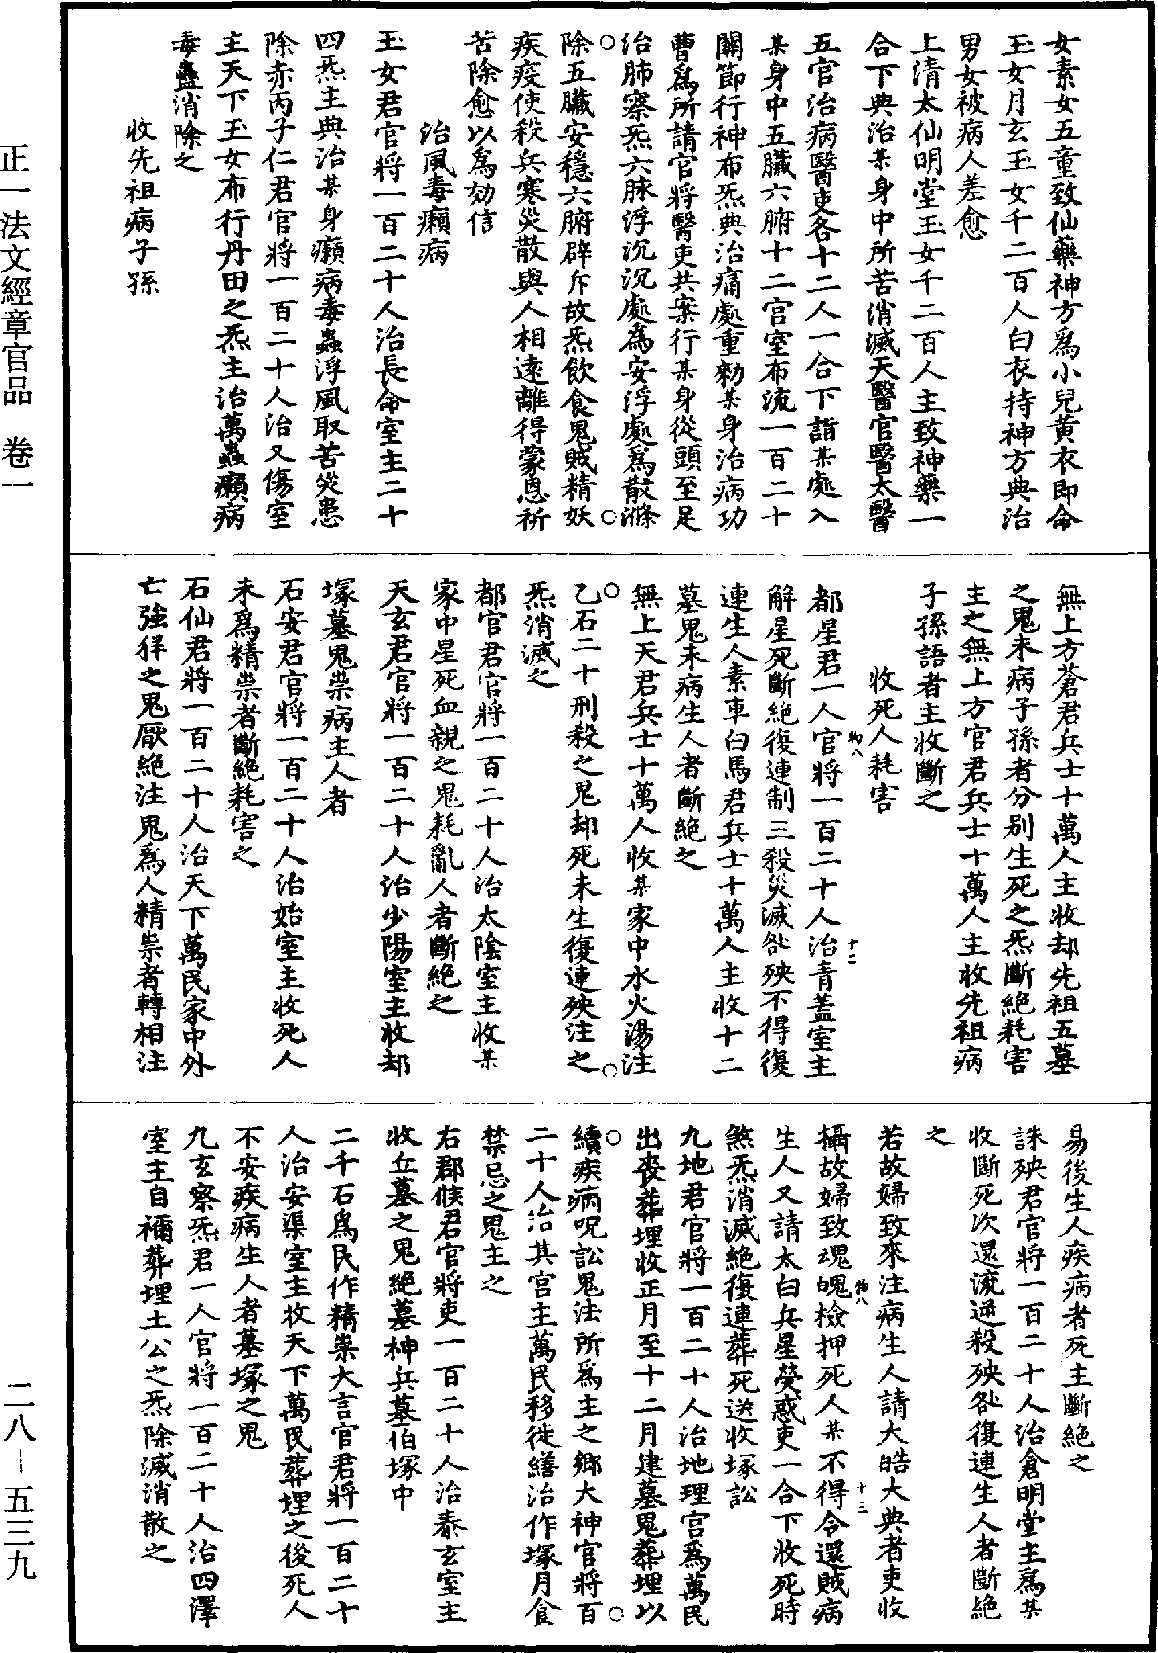 女素女五童致仙藥神方爲小兒黃衣即命
玉女月玄玉女千二百人白衣持神方典治
男女被病人差愈
上清太仙明堂玉女千二百人主致神藥一
合下典治某身中所苦消滅天醫官醫太醫
五官治病醫吏各十二人一合下詣某處入
某身中五臟六腑十二宫室布流一百二十
關節行神布炁典治痛處重勑某身治病功
曹爲所請官將醫吏共案行某身從頭至足
治肺察炁六脉浮沉沉處爲安浮處爲散滌
除五臟安穩六腑辟斥故炁飲食鬼賊精妖
疾疫使殺兵寒災散與人相遠離得蒙恩祈
苦除愈以爲効信
治風毒癩病
玉女君官將一百二十人治長命室主二十
四炁主典治某身癩病毒蟲浮風取苦災患
除赤丙子仁君官將一百二十人治又傷室
主天下玉女布行丹田之炁主治萬蟲癩病
毒蠱消除之
收先祖病子孫
無上方蒼君兵士十萬人主收却先祖五墓
之鬼來病子孫者分别生死之炁斷絶耗害
主之無上方官君兵士十萬人主收先祖病
子孫語者主收斷之
收死人耗害
都星君一人官將一百二十人治青蓋室主
解星死斷絶復連制三殺災滅咎殃不得復
連生人素車白馬君兵士十萬人主收十二
墓鬼來病生人者斷絶之
無上天君兵士十萬人收某家中水火湯注
乙石二十刑殺之鬼却死來生復連殃注之
炁消滅之
都官君官將一百二十人治太陰室主收某
家中星死血親之鬼耗亂人者斷絶之
天玄君官將一百二十人治少陽室主收却
塚墓鬼祟病主人者
石安君官將一百二十人治始室主收死人
来爲精祟者斷絶耗害之
石仙君將一百二十人治天下萬民家中外
亡強徉之鬼厭絶注鬼爲人精祟者轉相注
易後生人疾病者死主斷絶之
誅殃君官將一百二十人治倉明堂主爲某
收斷死次還流逆殺殃咎復連生人者斷絶
之
若故婦致來注病生人請大皓大典者吏收
攝故婦致魂魄檢押死人某不得令還賊病
生人又請太白兵星熒惑吏一合下收死時
煞炁消滅絶復連葬死送收塚訟
九地君官將一百二十人治地理宫爲萬民
出喪葬埋收正月至十二月建墓鬼葬埋以
續疾病呪訟鬼法所爲主之鄉大神官將百
二十人治其宫主萬民移徙繕治作塚月食
禁忌之鬼主之
右郡候君官將吏一百二十人治泰玄室主
收丘墓之鬼絶墓神兵墓伯塚中
二千石爲民作精祟大言官君將一百二十
人治安渠室主收天下萬民葬埋之後死人
不安疾病生人者墓塚之鬼
九玄察炁君一人官將一百二十人治四澤
室主自禰葬埋土公之炁除滅消散之
正一法文經章官品　卷一
二八－五三九